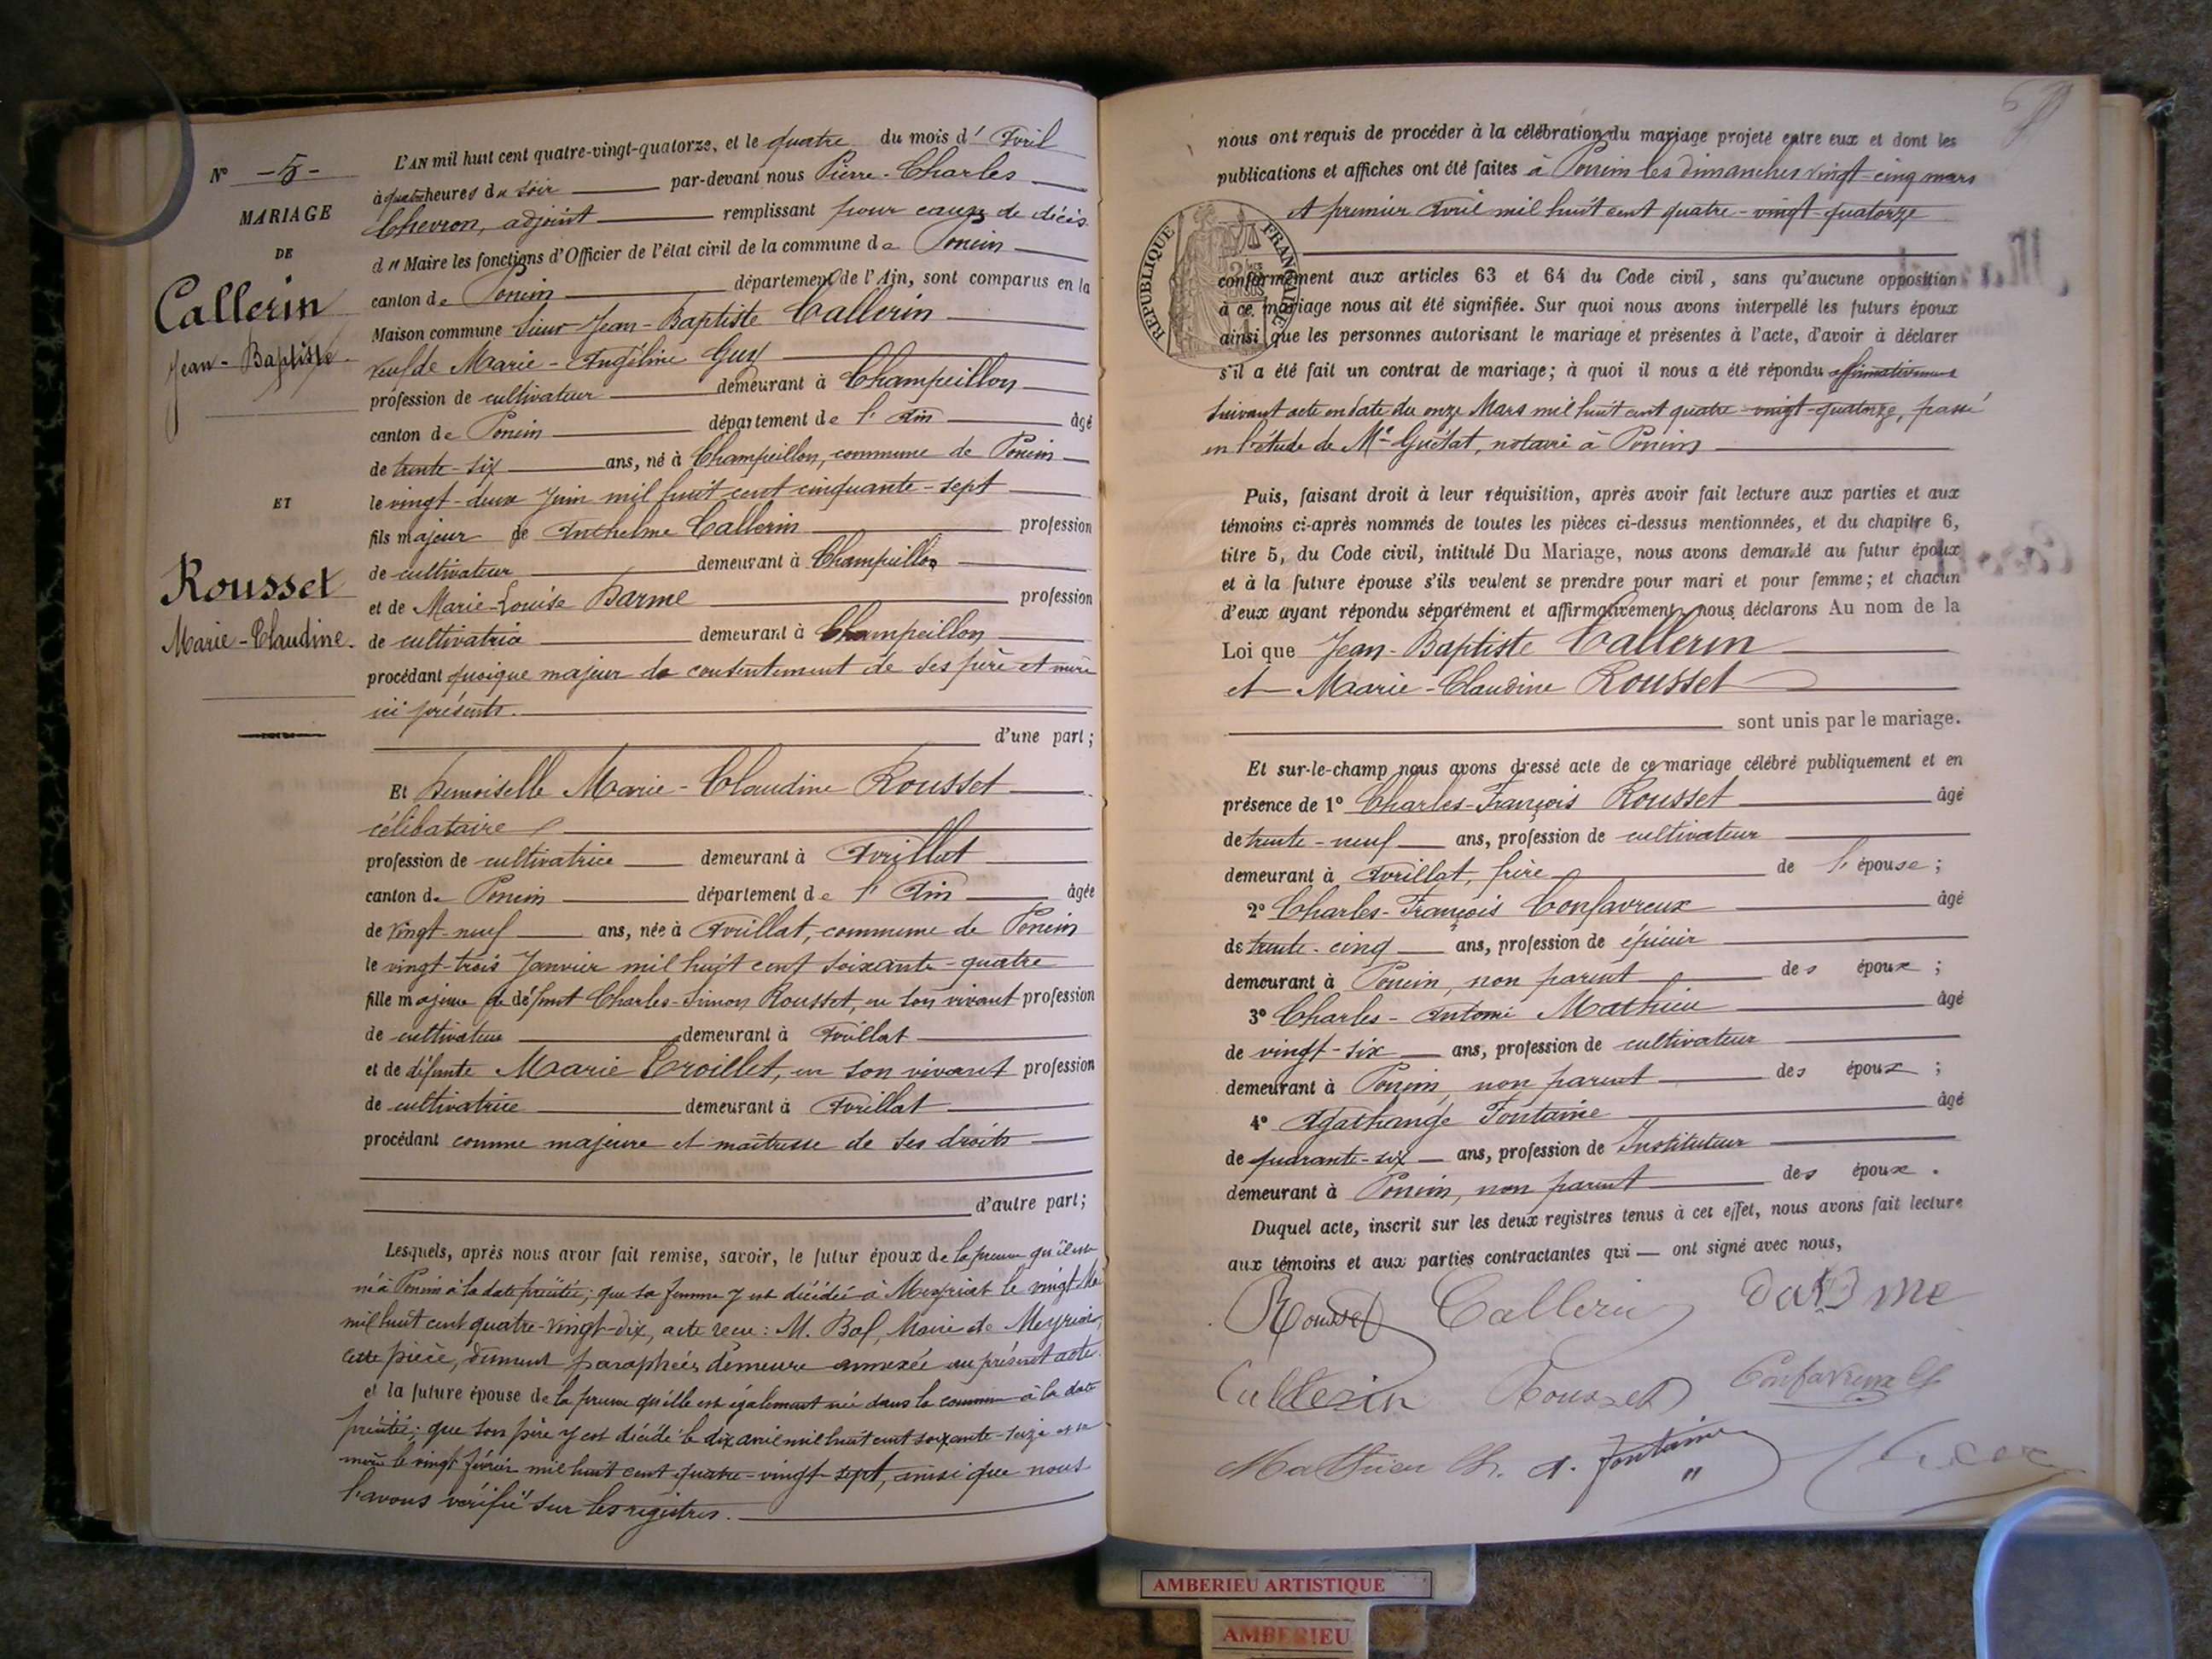 N° - 5 -
MARIAGE
DE
Callerin
Jean-Baptiste
ET
Rousset
Marie-Claudine.
L'AN mil huit cent quatre-vingt-quatorze, et le quatre du mois d' Avril
à quatre heures du soir par-devant nous Pierre-Charles
Chevron, adjoint remplissant pour cause de décès
du Maire les fonctions d'Officier de l'état civil de la commune de Poncin
canton de Poncin département de l'Ain, sont comparus en la
Maison commune Sieur Jean-Baptiste Callerin
veuf de Marie-Angéline Guy
profession de cultivateur demeurant à Champeillon
canton de Poncin département de l'Ain âgé
de trente-six ans, né à Champeillon, commune de Poncin
le vingt-deux Juin mil huit cent cinquante-sept
fils majeur de Anthelme Callerin profession
de cultivateur demeurant à Champeillon
et de Marie-Louise Darme profession
de cultivatrice demeurant à Champeillon
procédant quoique majeur du consentement de ses père et mère
ici présents.
d'une part;
Et Demoiselle Marie-Claudine Rousset
célibataire
profession de cultivatrice demeurant à Avrillat
canton de Poncin département de l'Ain âgée
de vingt-neuf ans, née à Avrillat, commune de Poncin
le vingt-trois Janvier mil huit cent soixante-quatre
fille majeure de défunt Charles-Simon Rousset, en son vivant profession
de cultivateur demeurant à Avrillat
et de défunte Marie Croillet, en son vivant profession
de cultivatrice demeurant à Avrillat
procédant comme majeure et maîtresse de ses droits
d'autre part;
Lesquels, après nous avoir fait remise, savoir, le futur époux de la preuve qu'il est
né à Poncin à la date précitée; que sa femme y est décédée à Meyriat le vingt Mai
mil huit cent quatre-vingt-dix, acte reçu: M. Bal, Maire de Meyriat,
cette pièce, dument paraphée, demeure annexée au présent acte.
et la future épouse de la preuve qu'elle est également née dans la commune à la date
précitée; que son père y est décédé le dix avril mil huit cent soixante-seize et sa
mère le vingt février mil huit cent quatre-vingt-sept, ainsi que nous
l'avons vérifié sur les registres.
nous ont requis de procéder à la célébration du mariage projeté entre eux et dont les
publications et affiches ont été faites à Poncin les dimanches vingt-cinq mars
et premier Avril mil huit cent quatre-vingt-quatorze
RÉPUBLIQUE FRANÇAISE
conformément aux articles 63 et 64 du Code civil, sans qu'aucune opposition
à ce mariage nous ait été signifiée. Sur quoi nous avons interpellé les futurs époux
ainsi que les personnes autorisant le mariage et présentes à l'acte, d'avoir à déclarer
s'il a été fait un contrat de mariage; à quoi il nous a été répondu affirmativement
suivant acte en date du onze Mars mil huit cent quatre-vingt-quatorze, passé
en l'étude de Me Guétat, notaire à Poncin
Puis, faisant droit à leur réquisition, après avoir fait lecture aux parties et aux
témoins ci-après nommés de toutes les pièces ci-dessus mentionnées, et du chapitre 6,
titre 5, du Code civil, intitulé Du Mariage, nous avons demandé au futur époux
et à la future épouse s'ils veulent se prendre pour mari et pour femme; et chacun
d'eux ayant répondu séparément et affirmativement, nous déclarons Au nom de la
Loi que Jean-Baptiste Callerin
et Marie-Claudine Rousset
sont unis par le mariage.
Et sur-le-champ nous avons dressé acte de ce mariage célébré publiquement et en
présence de 1° Charles-François Rousset âgé
de trente-neuf ans, profession de cultivateur
demeurant à Avrillat, frère de l'épouse;
2° Charles-François Confavreux âgé
de trente-cinq ans, profession de épicier
demeurant à Poncin, non parent des époux;
3° Charles-Antoine Mathieu âgé
de vingt-six ans, profession de cultivateur
demeurant à Poncin, non parent des époux;
4° Agathange Fontaine âgé
de quarante-six ans, profession de Instituteur
demeurant à Poncin, non parent des époux.
Duquel acte, inscrit sur les deux registres tenus à cet effet, nous avons fait lecture
aux témoins et aux parties contractantes qui — ont signé avec nous,
Rousset Callerin darme
Callerin Rousset Confavreux
Mathieu Ch. A. Fontaine
AMBERIEU ARTISTIQUE
AMBERIEU